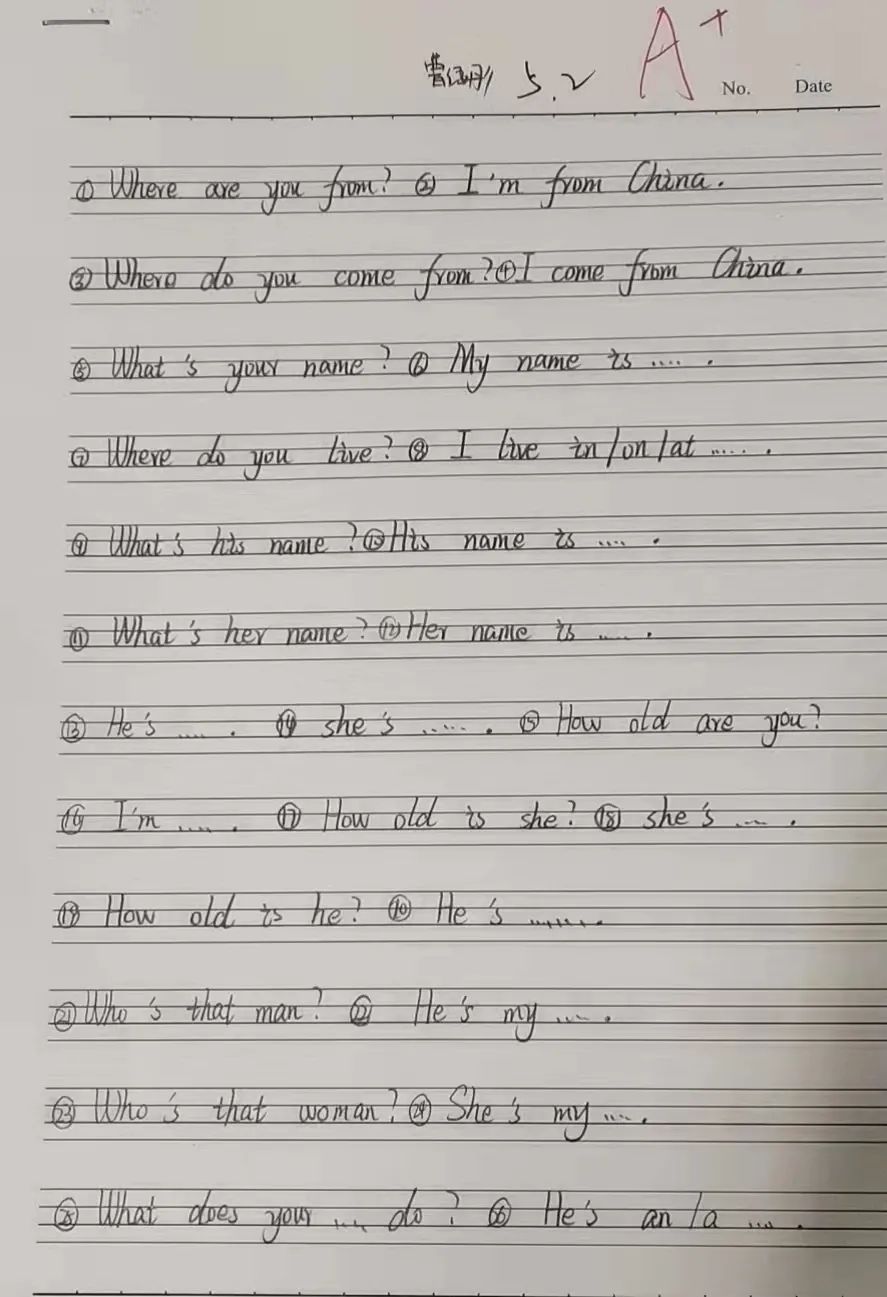 曹 5.2 A+ No. Date
① Where are you from? ② I'm from China.
③ Where do you come from? ④ I come from China.
⑤ What's your name? ⑥ My name is .... .
⑦ Where do you live? ⑧ I live in/on/at ..... .
⑨ What's his name? ⑩ His name is .... .
⑪ What's her name? ⑫ Her name is ..... .
⑬ He's .... . ⑭ she's ..... . ⑮ How old are you?
⑯ I'm ..... . ⑰ How old is she? ⑱ she's .... .
⑲ How old is he? ⑳ He's .......
㉑ Who's that man? ㉒ He's my .... .
㉓ Who's that woman? ㉔ She's my .... .
㉕ What does your .... do? ㉖ He's an/a .... .